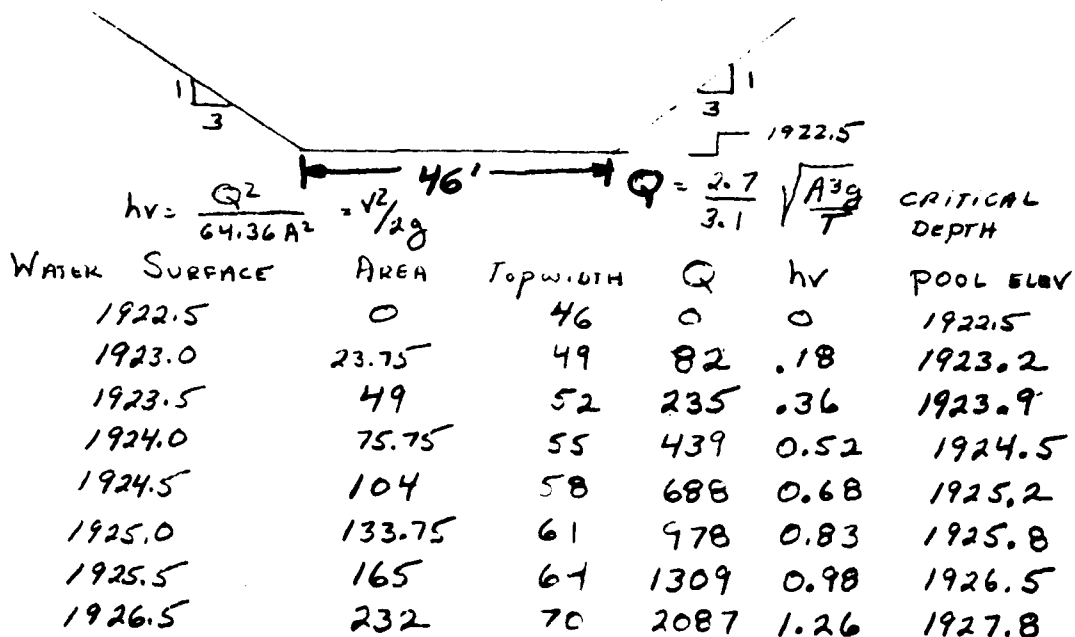 1 3
3 1
1922.5
46'
hv = Q²/64.36 A² = V²/2g
Q = 2.7/3.1 √(A³g/T) CRITICAL DEPTH
WATER SURFACE AREA TOPWIDTH Q hv POOL ELEV
1922.5 0 46 0 0 1922.5
1923.0 23.75 49 82 .18 1923.2
1923.5 49 52 235 .36 1923.9
1924.0 75.75 55 439 0.52 1924.5
1924.5 104 58 688 0.68 1925.2
1925.0 133.75 61 978 0.83 1925.8
1925.5 165 64 1309 0.98 1926.5
1926.5 232 70 2087 1.26 1927.8